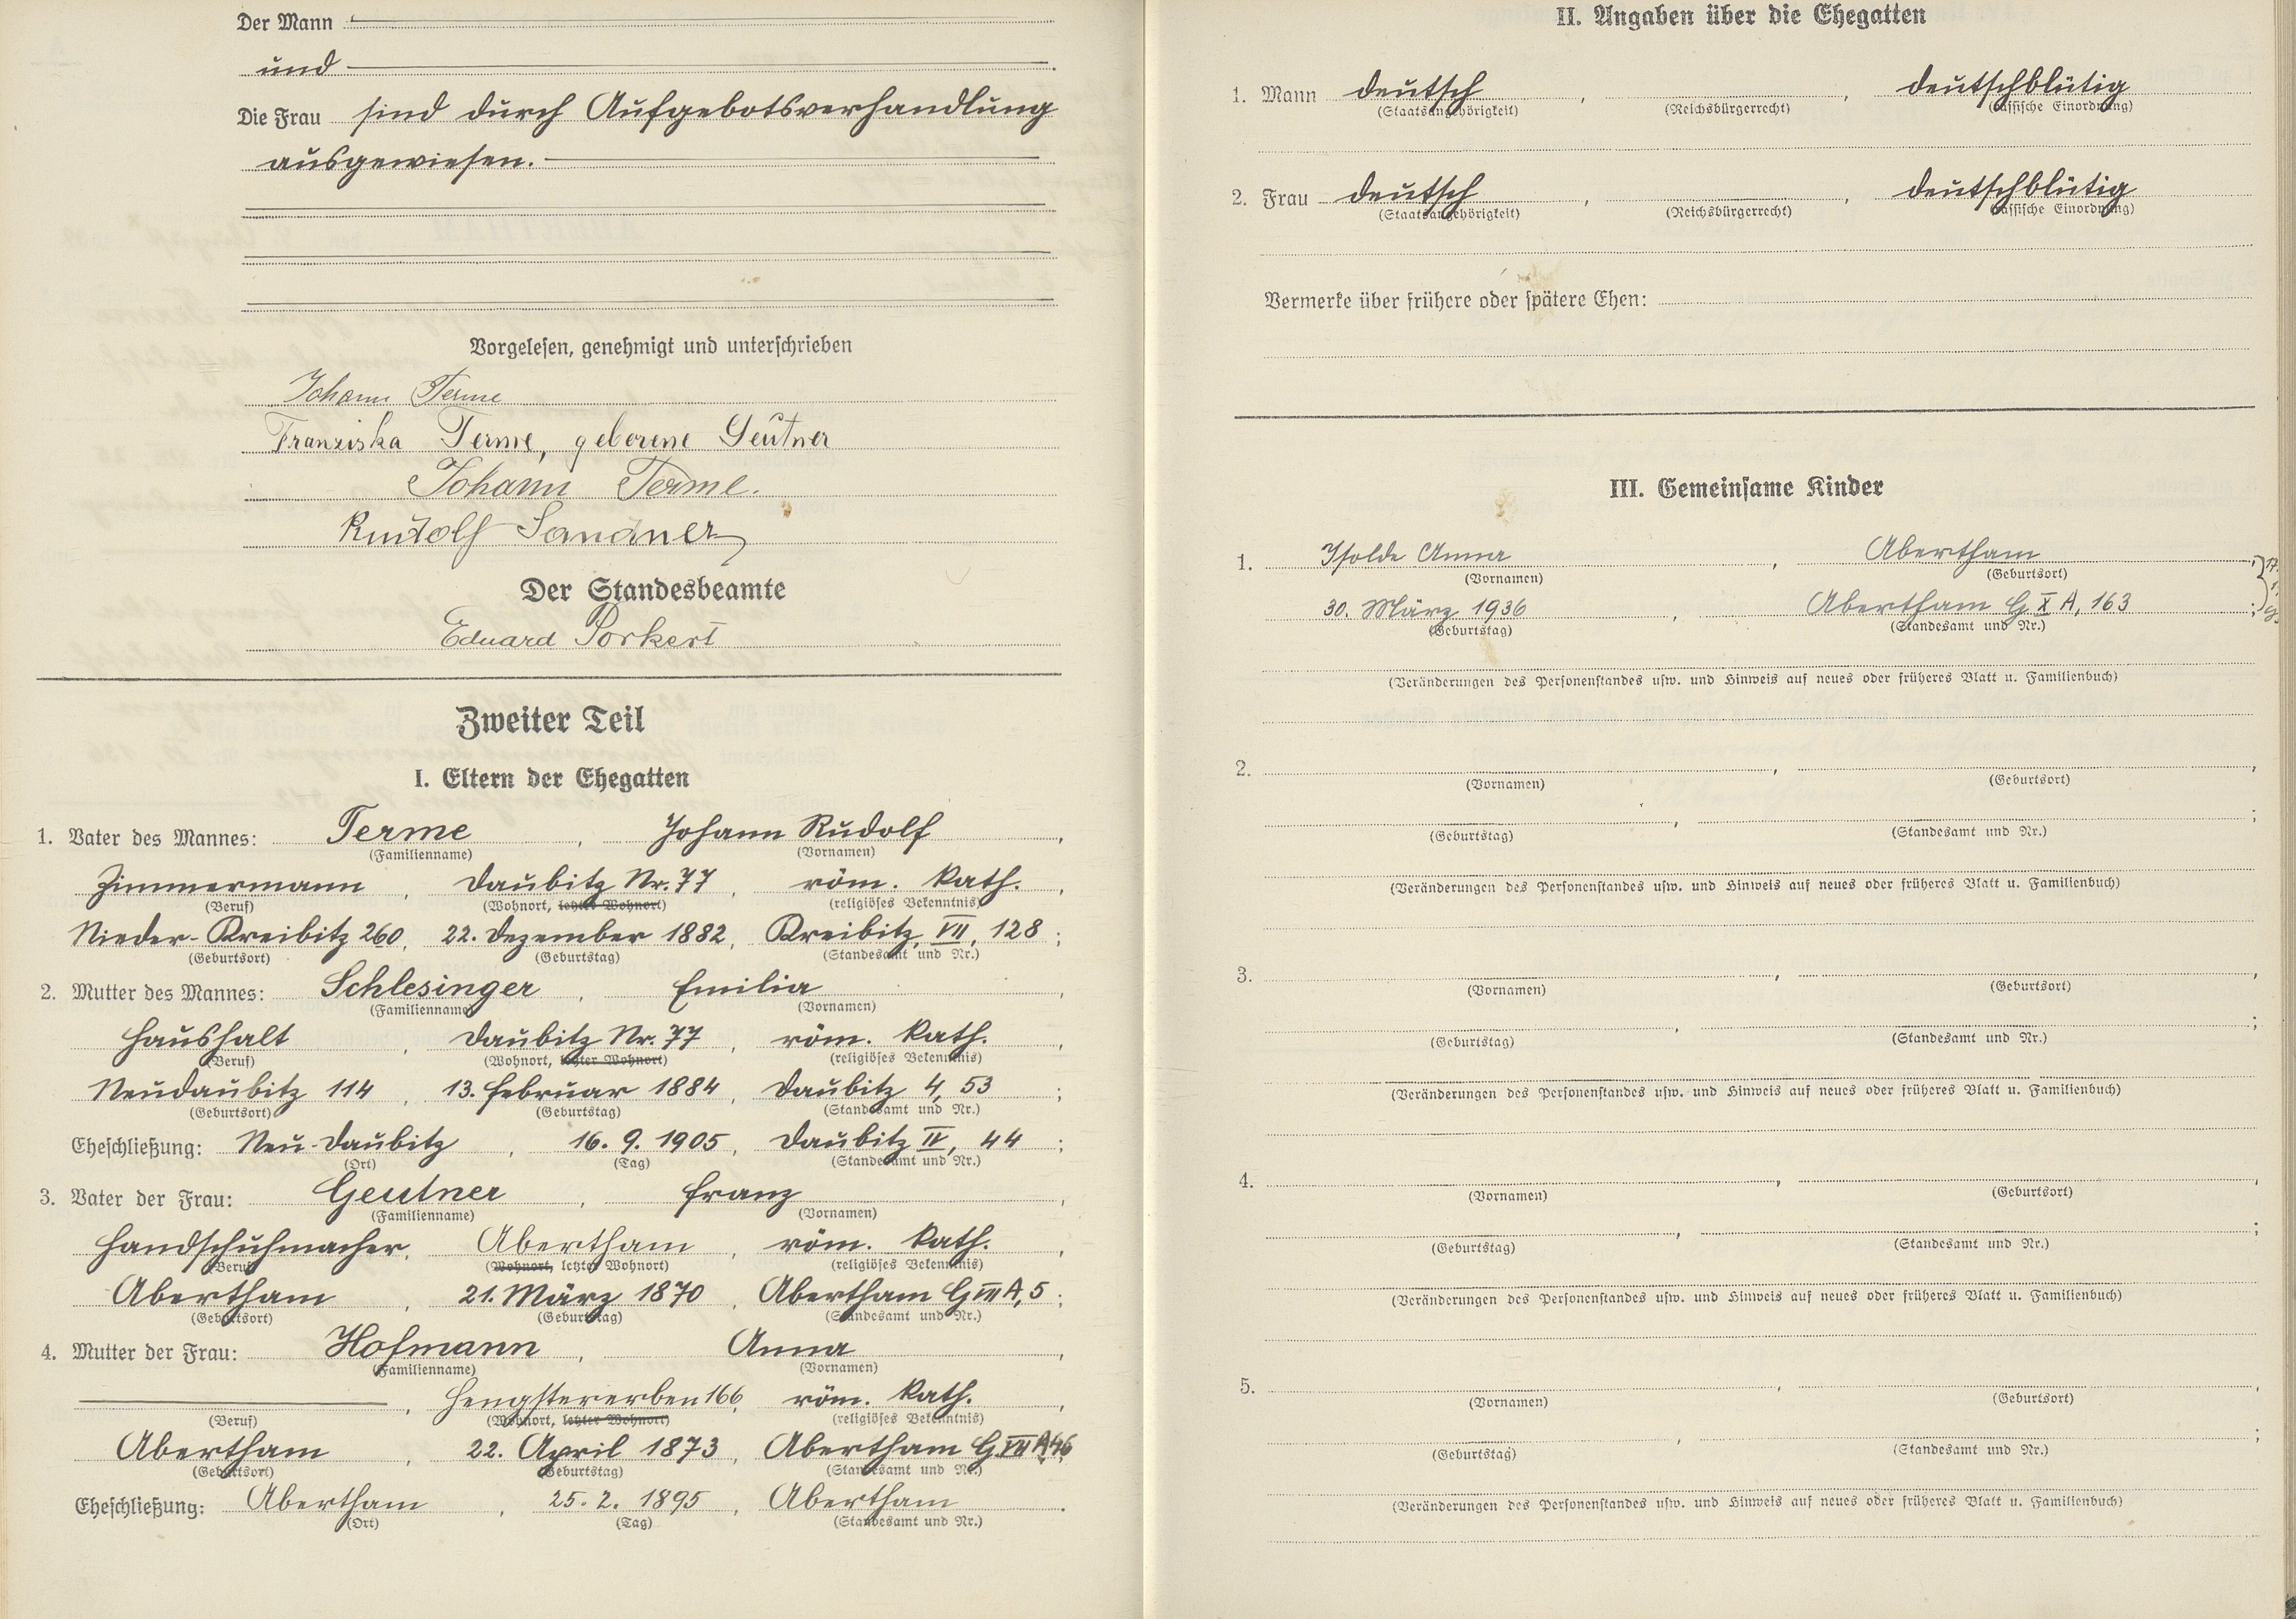 Der Mann
und
Die Frau sind durch Aufgebotsverhandlung
ausgewiesen.
Vorgelesen, genehmigt und unterschrieben
Johann Terme
Franziska Terme, geborene Geutner
Johann Terme.
Rudolf Sandner
Der Standesbeamte
Eduard Porkert
Zweiter Teil
I. Eltern der Ehegatten
1. Vater des Mannes: Terme, Johann Rudolf,
(Familienname) (Vornamen)
Zimmermann, Daubitz Nr. 77, röm. kath.,
(Beruf) (Wohnort, letzter Wohnort) (religiöses Bekenntnis)
Nieder-Kreibitz 260, 22. Dezember 1882, Kreibitz, VII, 128;
(Geburtsort) (Geburtstag) (Standesamt und Nr.)
2. Mutter des Mannes: Schlesinger, Emilia,
(Familienname) (Vornamen)
Haushalt, Daubitz Nr. 77, röm. kath.,
(Beruf) (Wohnort, letzter Wohnort) (religiöses Bekenntnis)
Neudaubitz 114, 13. Februar 1884, Daubitz 4, 53;
(Geburtsort) (Geburtstag) (Standesamt und Nr.)
Eheschließung: Neu-Daubitz, 16. 9. 1905, Daubitz IV, 44;
(Ort) (Tag) (Standesamt und Nr.)
3. Vater der Frau: Geutner, Franz,
(Familienname) (Vornamen)
Handschuhmacher, Abertham, röm. kath.,
(Beruf) (Wohnort, letzter Wohnort) (religiöses Bekenntnis)
Abertham, 21. März 1870, Abertham G III A, 5;
(Geburtsort) (Geburtstag) (Standesamt und Nr.)
4. Mutter der Frau: Hofmann, Anna,
(Familienname) (Vornamen)
, Hengstererben 166, röm. kath.,
(Beruf) (Wohnort, letzter Wohnort) (religiöses Bekenntnis)
Abertham, 22. April 1873, Abertham G. VII A,46
(Geburtsort) (Geburtstag) (Standesamt und Nr.)
Eheschließung: Abertham, 25. 2. 1895, Abertham.
(Ort) (Tag) (Standesamt und Nr.)
II. Angaben über die Ehegatten
1. Mann deutsch, , deutschblütig
(Staatsangehörigkeit) (Reichsbürgerrecht) (rassische Einordnung)
2. Frau deutsch, , deutschblütig
(Staatsangehörigkeit) (Reichsbürgerrecht) (rassische Einordnung)
Vermerke über frühere oder spätere Ehen:
III. Gemeinsame Kinder
1. Isolde Anna, Abertham,
(Vornamen) (Geburtsort)
30. März 1936, Abertham G X A, 163;
(Geburtstag) (Standesamt und Nr.)
(Veränderungen des Personenstandes usw. und Hinweis auf neues oder früheres Blatt u. Familienbuch)
2. , ,
(Vornamen) (Geburtsort)
, ;
(Geburtstag) (Standesamt und Nr.)
(Veränderungen des Personenstandes usw. und Hinweis auf neues oder früheres Blatt u. Familienbuch)
3. , ,
(Vornamen) (Geburtsort)
, ;
(Geburtstag) (Standesamt und Nr.)
(Veränderungen des Personenstandes usw. und Hinweis auf neues oder früheres Blatt u. Familienbuch)
4. , ,
(Vornamen) (Geburtsort)
, ;
(Geburtstag) (Standesamt und Nr.)
(Veränderungen des Personenstandes usw. und Hinweis auf neues oder früheres Blatt u. Familienbuch)
5. , ,
(Vornamen) (Geburtsort)
, ;
(Geburtstag) (Standesamt und Nr.)
(Veränderungen des Personenstandes usw. und Hinweis auf neues oder früheres Blatt u. Familienbuch)